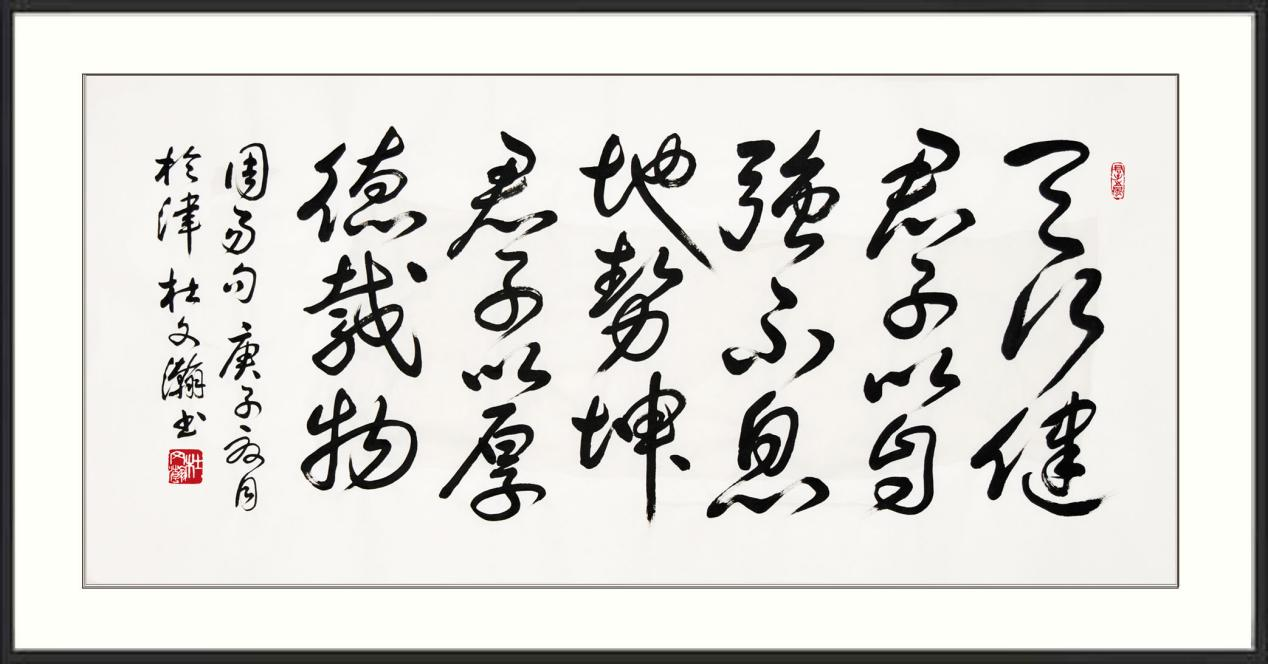 天行健
君子以自
強不息
地勢坤
君子以厚
德載物
周易句 庚子 月
於津 杜文瀚书
杜文瀚